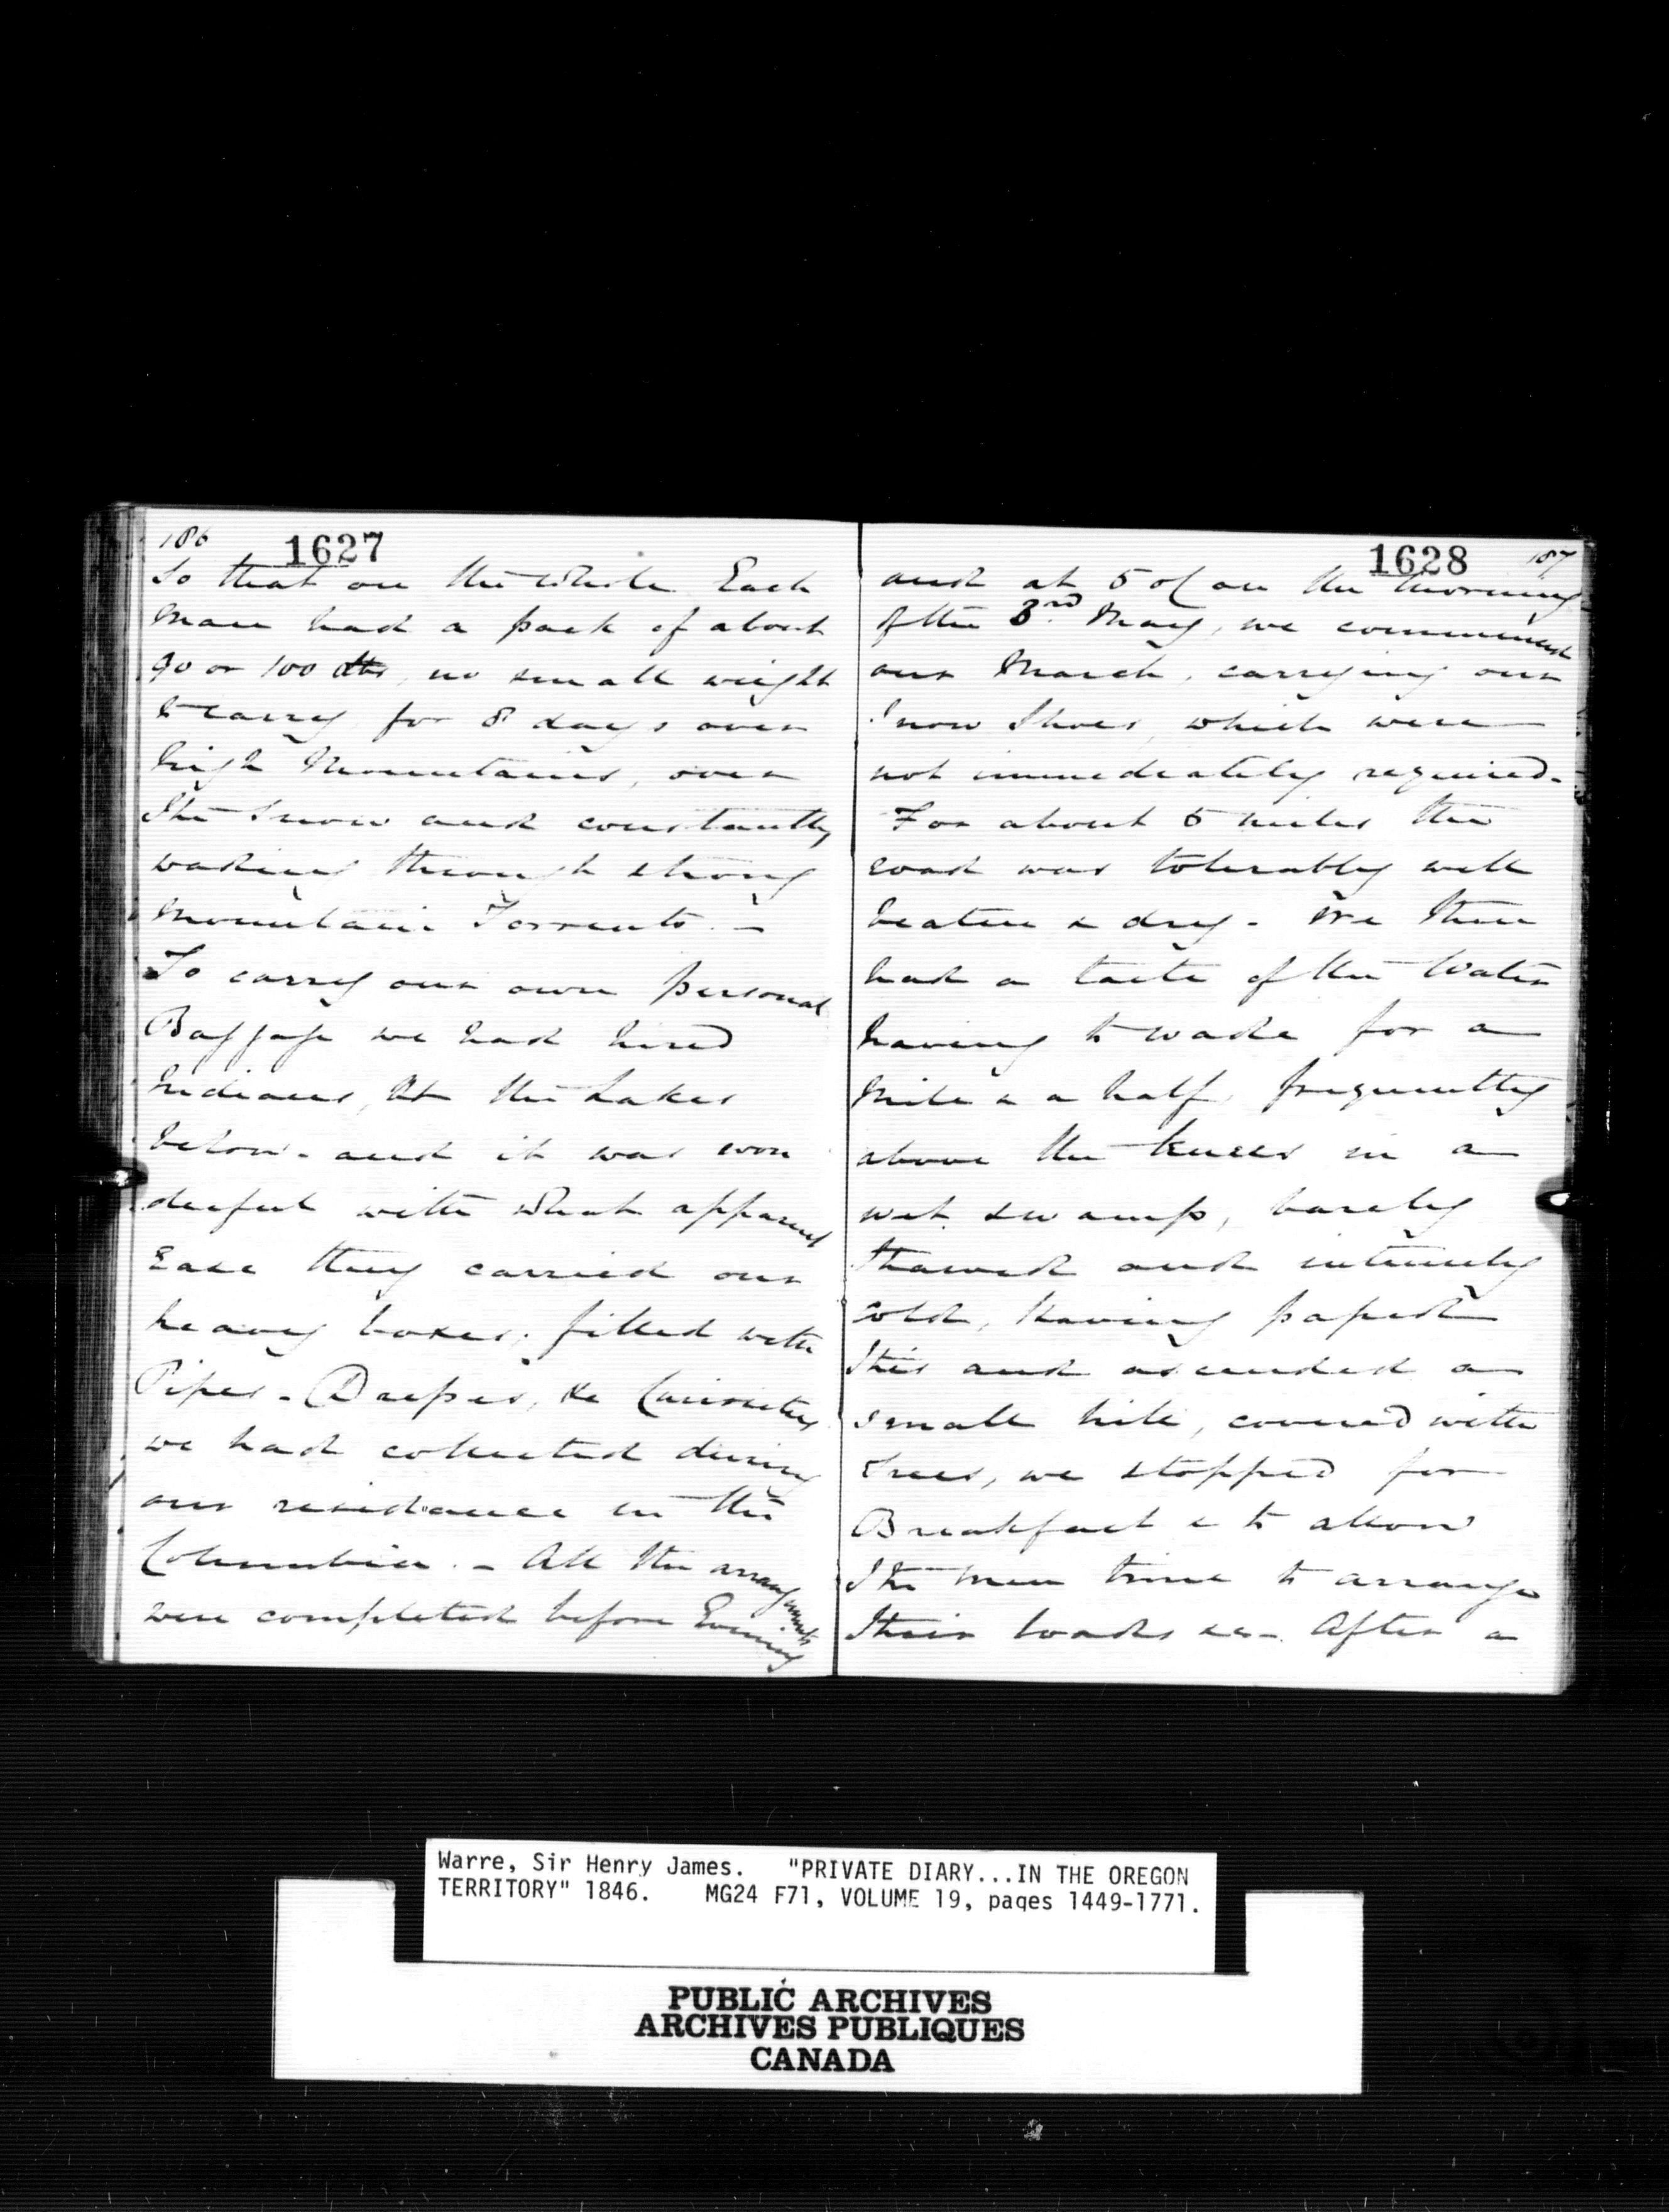 186
1627
So that on the whole Each
Man had a pack of about
90 or 100 lbs, no small weight
to carry for 8 days over
high Mountains, over
the Snow and constantly
wading through strong
Mountain Torrents. –
To carry our own personal
Baggage we had hired
Indians, at the Lakes
below – and it was won
derful with what apparent
Ease they carried our
heavy boxes, filled with
Pipes – Dresses, &c Curiosities
we had collected during
our residence in the
Columbia. – All the arrangements
were completed before Evening
1628
187
and at 5 o'C on the morning
of the 3rd. May, we commenced
our March, carrying our
Snow Shoes, which were
not immediately required –
For about 5 miles the
road was tolerably well
beaten & dry – We then
had a taste of the Water
having to wade for a
Mile & a half, frequently
above the knees in a
wet swamp, barely
thawed and intensely
cold, Having passed
this and ascended a
small hill, covered with
Trees, we stopped for
Breakfast & to allow
the Men time to arrange
their loads &c –. After a
Warre, Sir Henry James. "PRIVATE DIARY...IN THE OREGON
TERRITORY" 1846. MG24 F71, VOLUME 19, pages 1449-1771.
PUBLIC ARCHIVES
ARCHIVES PUBLIQUES
CANADA